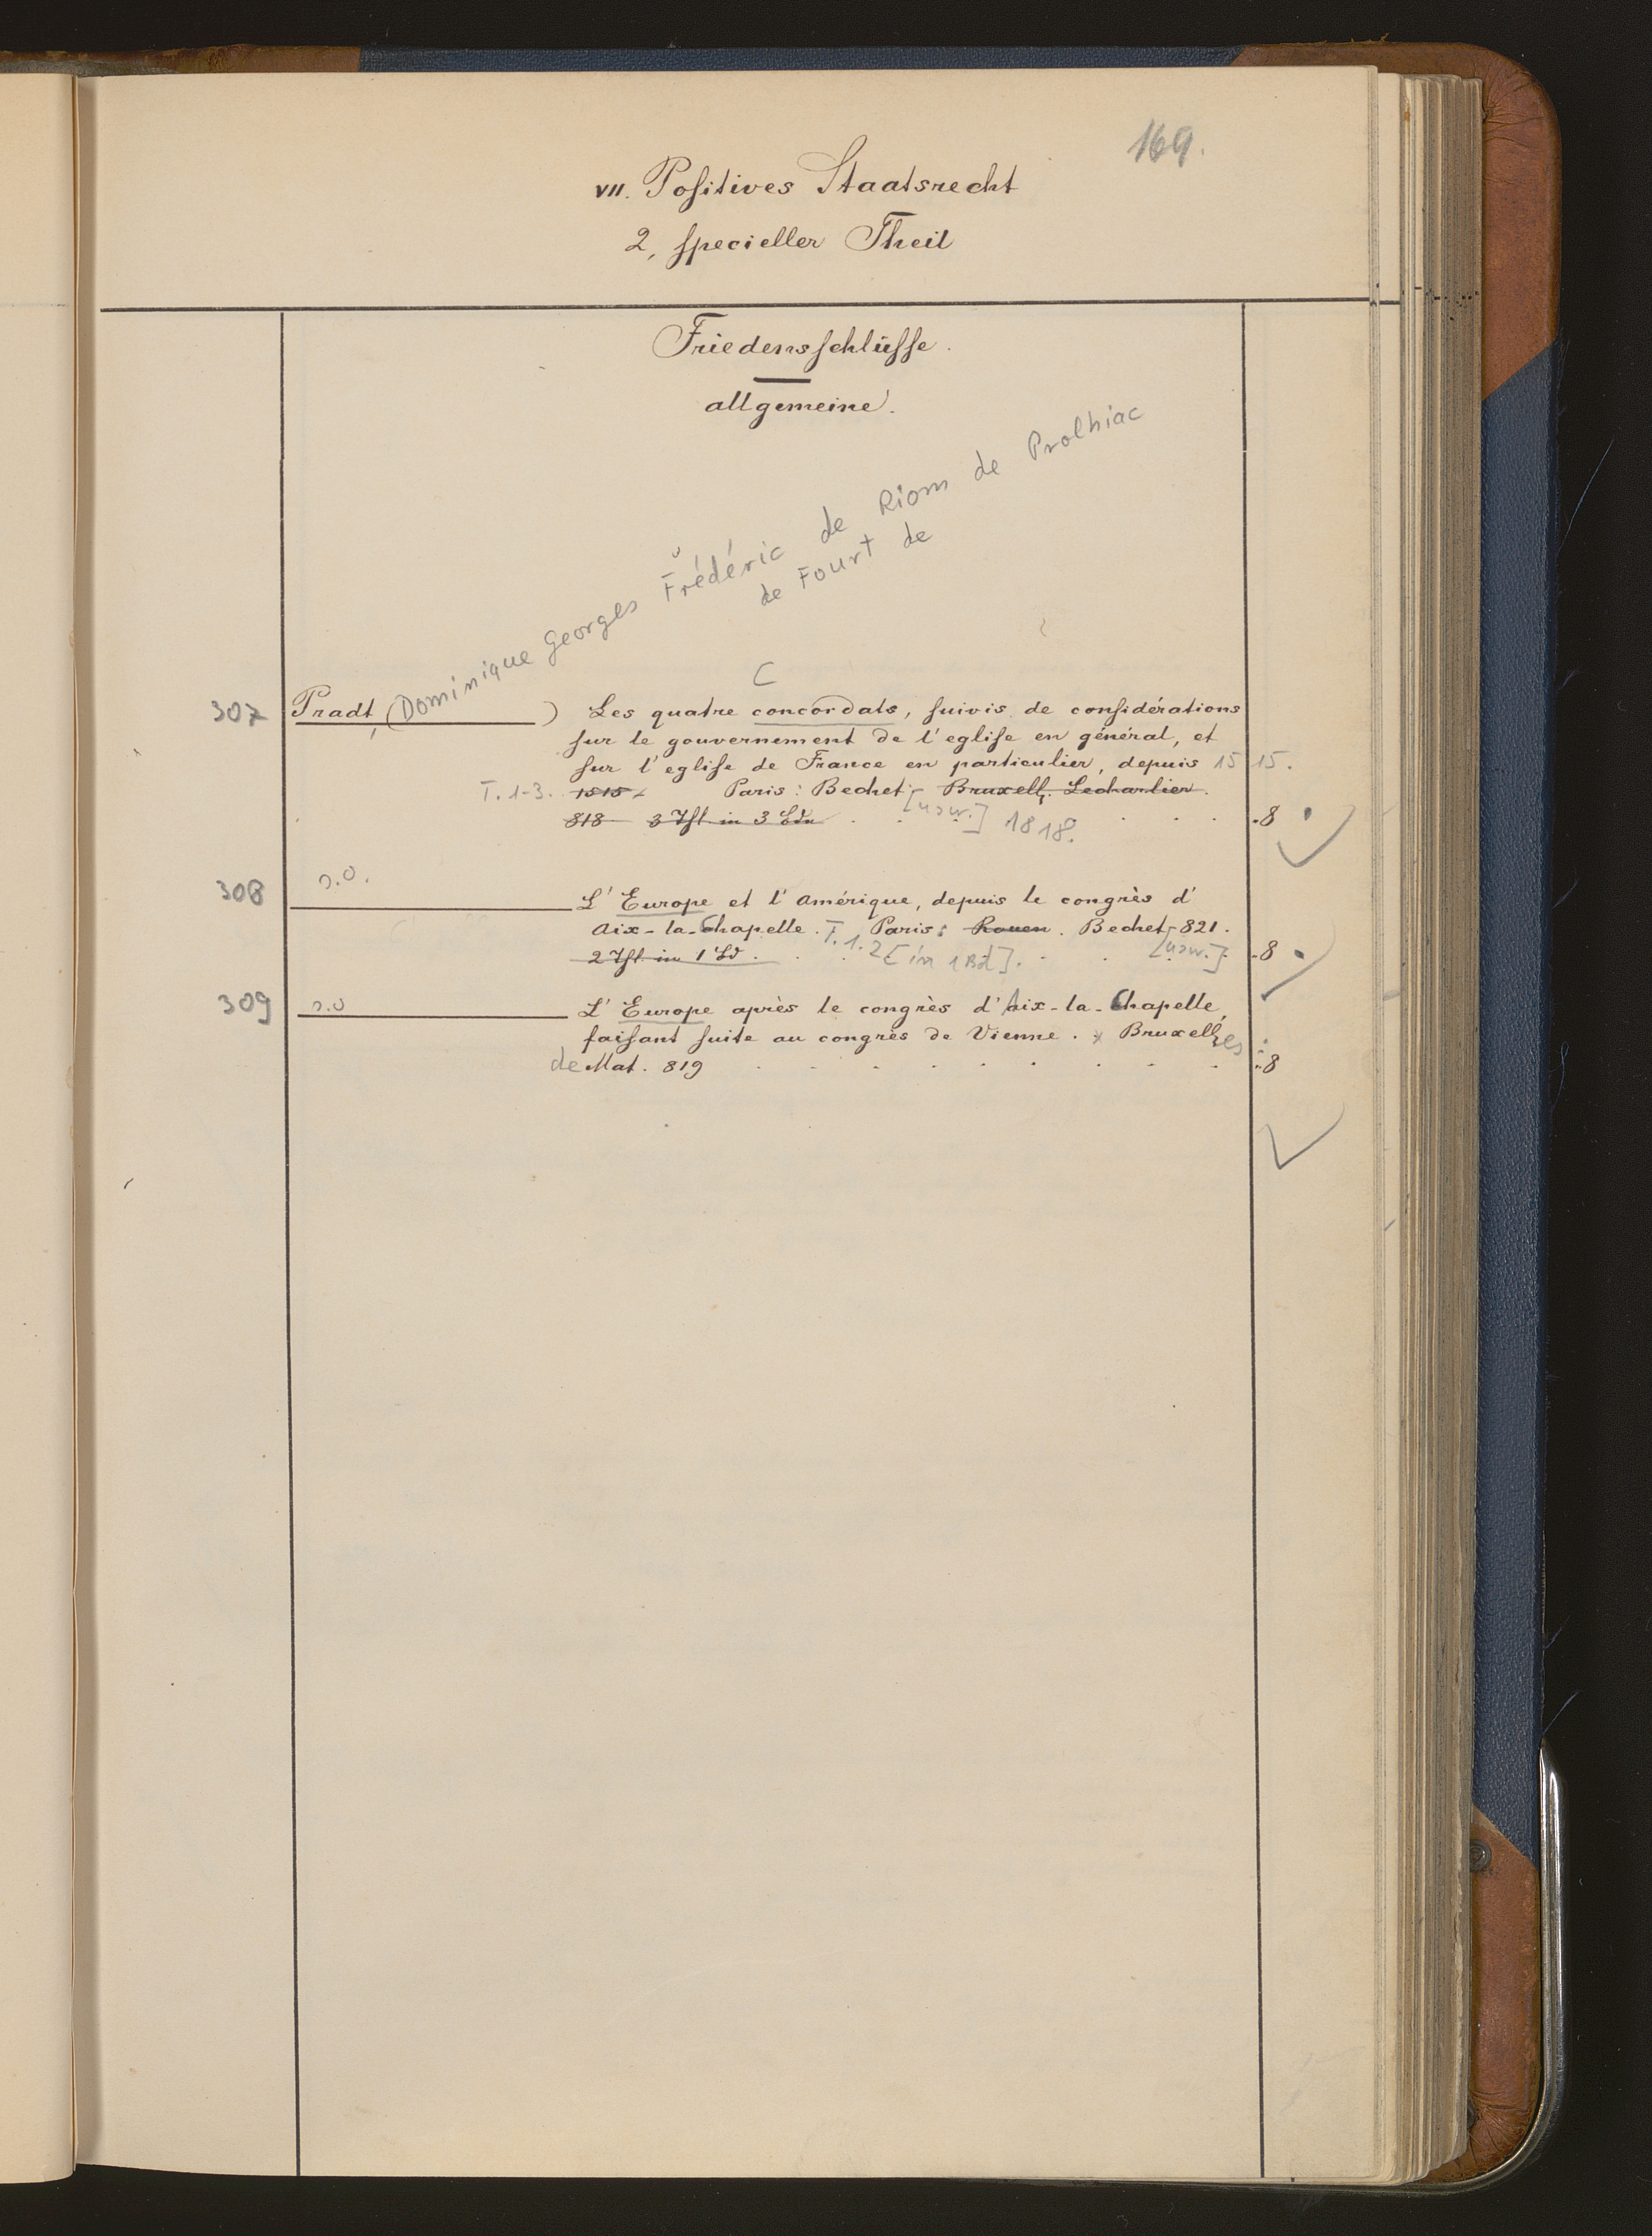 169.
VII. Positives Staatsrecht
2, specieller Theil
Friedensschlüsse.
allgemeine.
(Dominique Georges Frédéric de Riom de Prolhiac
de Fourt de
C
307 Pradt, ) Les quatre concordats, suivis de considérations
sur le gouvernement de l'eglise en général, et
sur l'eglise de France en particulier, depuis 1515.
T. 1-3. 1515. Paris: Bechet [usw.] Bruxell. Lecharlier.
818 3 Thl in 3 Bdn 1818. .8
308 s.o. L'Europe et l'amérique, depuis le congrès d'
aix-la-Chapelle. T. 1.2 [in 1 Bd]. Paris: Rouen. Bechet [usw.] 821.
2 Thl in 1 Bd. .8
309 s.o L'Europe après le congrès d'Aix-la-Chapelle,
faisant suite au congrès de Vienne. Bruxelles
de Mat. 819 .8